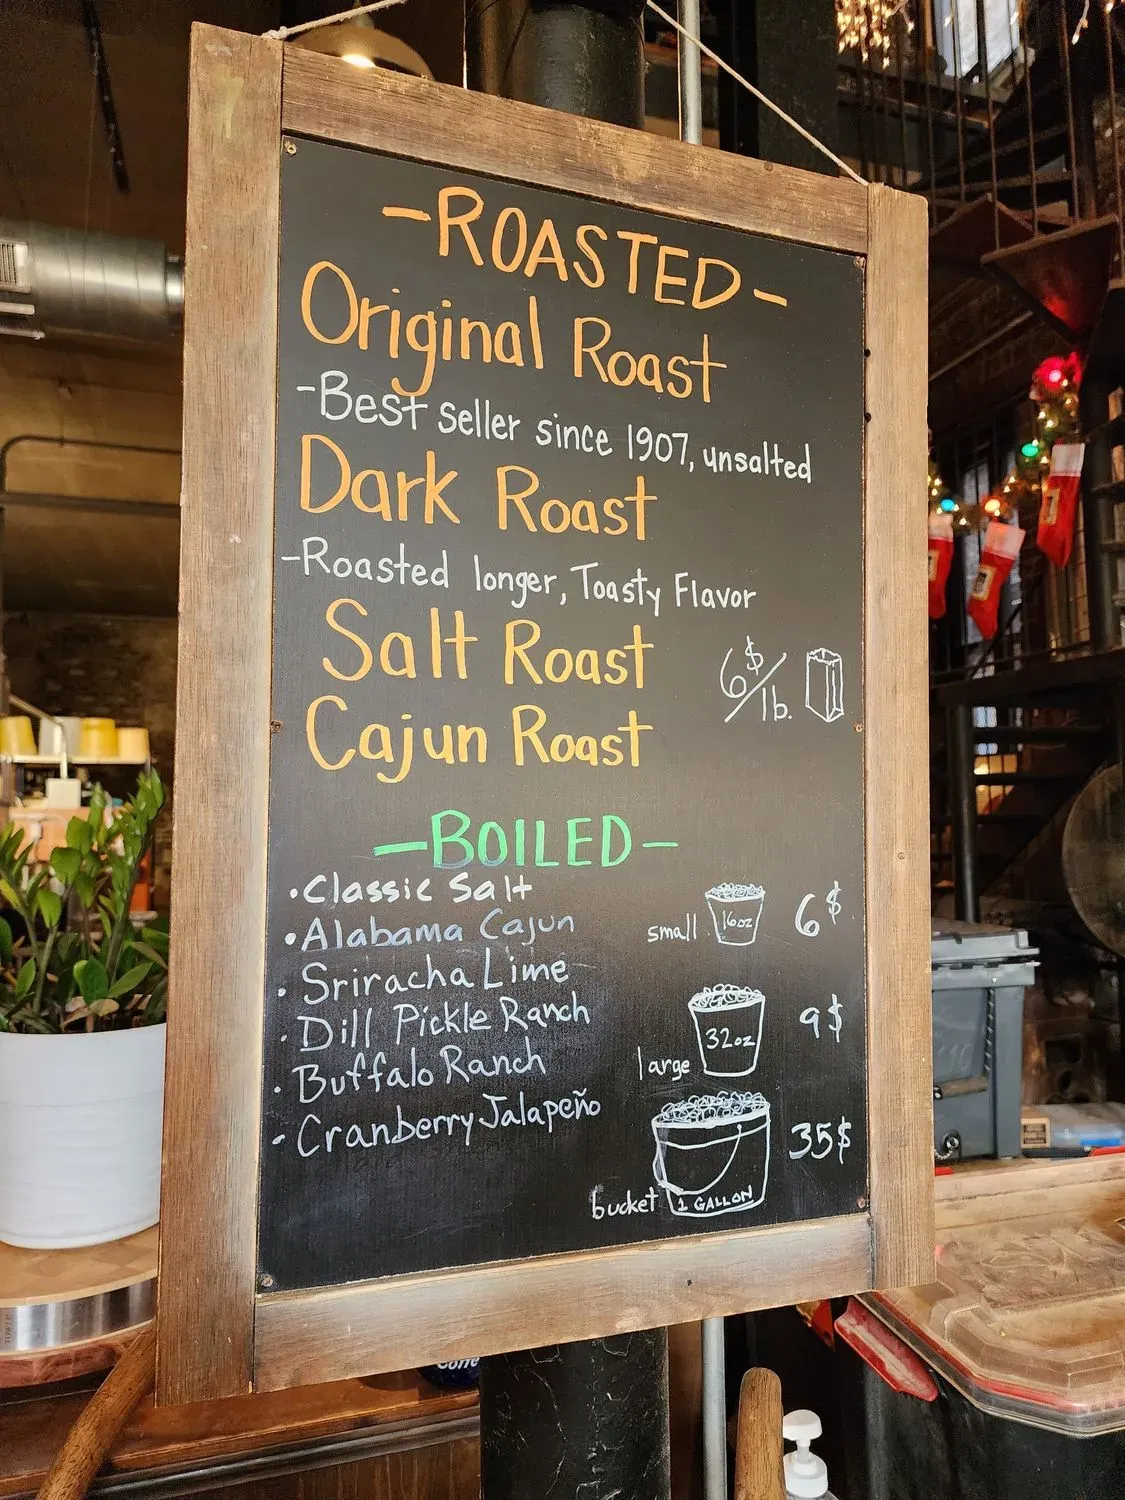 -ROASTED-
Original Roast
-Best seller since 1907, unsalted
Dark Roast
-Roasted longer, Toasty Flavor
Salt Roast
6$/lb.
Cajun Roast
-BOILED-
• Classic Salt
• Alabama Cajun
• Sriracha Lime
• Dill Pickle Ranch
• Buffalo Ranch
• Cranberry Jalapeño
small 16oz 6$
large 32oz 9$
bucket 1 GALLON 35$
Coffee